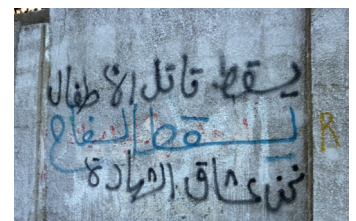 يسقط قاتل الأطفال
يسقط السفاح
نحن عشاق الشهادة
R